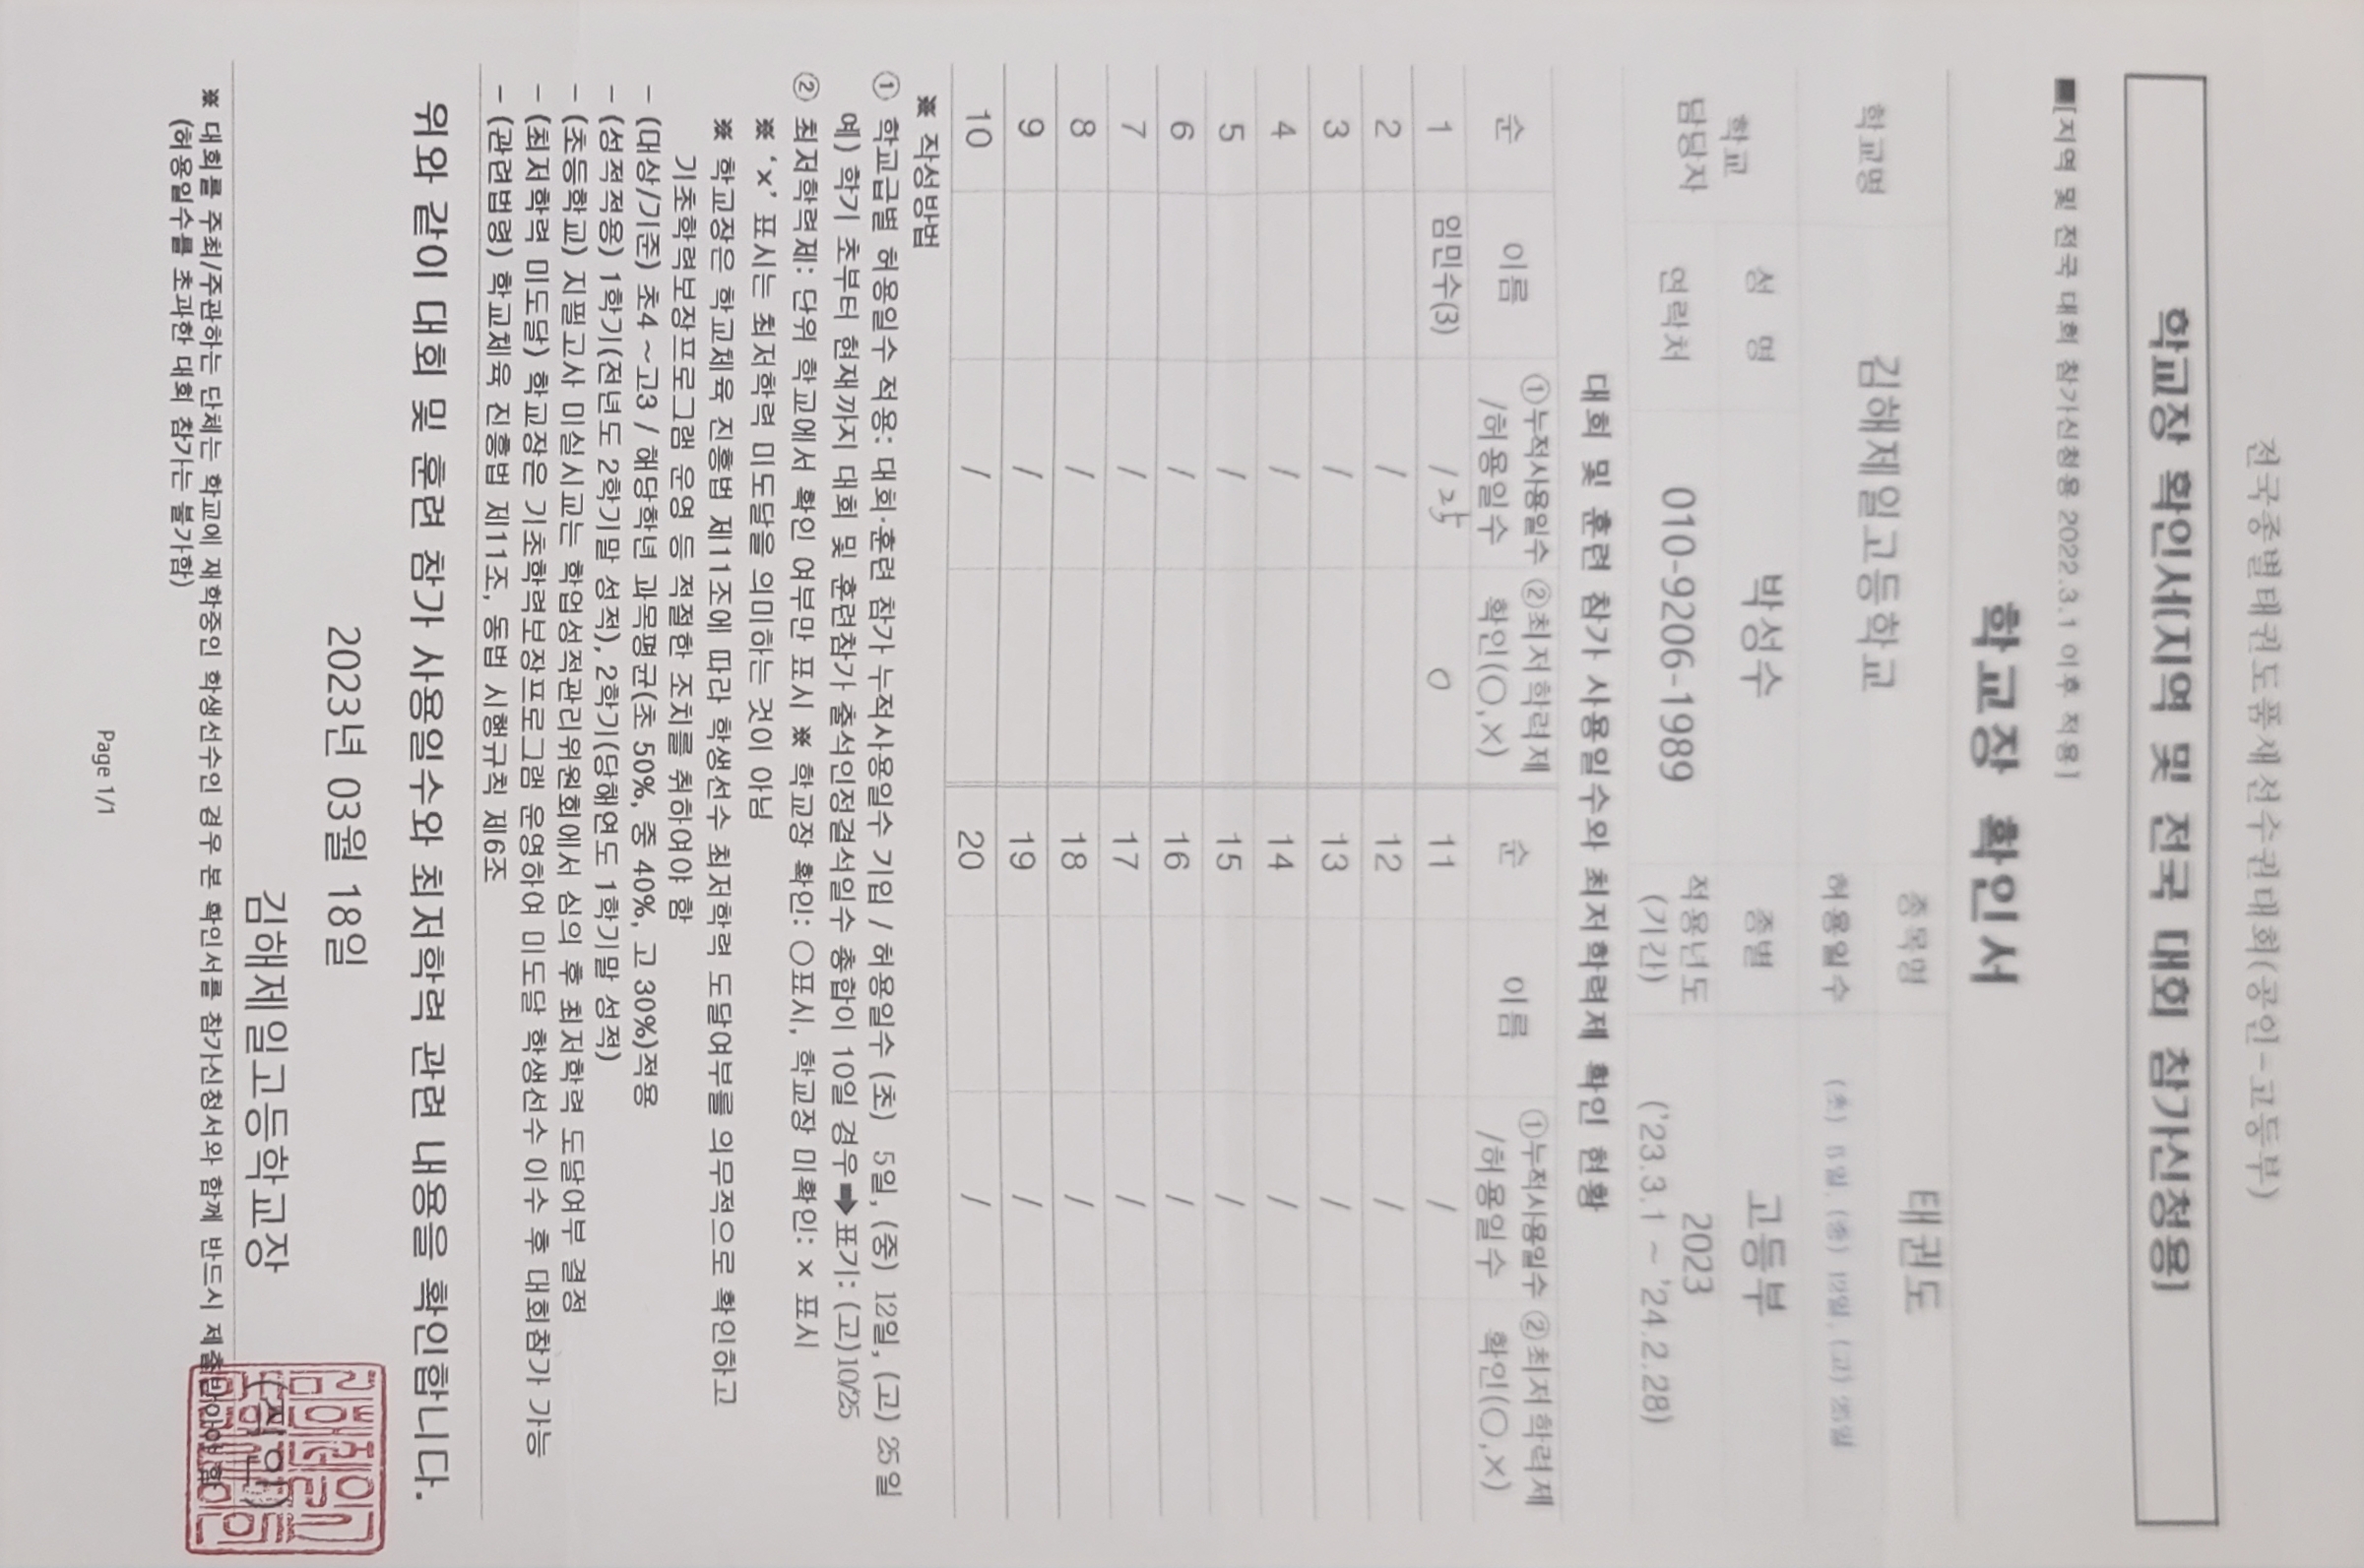 전국종별태권도품새선수권대회(공인-고등부)
학교장 확인서[지역 및 전국 대회 참가신청용]
■[지역 및 전국 대회 참가신청용 2022.3.1 이후 적용]
학교장 확인서
학교명 김해제일고등학교 종목명 태권도
허용일수 (초) 5일, (중) 12일, (고) 25일
학교 담당자 성 명 박성수 종별 고등부
연락처 010-9206-1989 적용년도 (기간) 2023 ('23.3.1 ~ '24.2.28)
대회 및 훈련 참가 사용일수와 최저학력제 확인 현황
순 이름 ①누적사용일수 /허용일수 ②최저학력제 확인(○,×) 순 이름 ①누적사용일수 /허용일수 ②최저학력제 확인(○,×)
1 임민수(3) / 25 ○ 11 /
2 / 12 /
3 / 13 /
4 / 14 /
5 / 15 /
6 / 16 /
7 / 17 /
8 / 18 /
9 / 19 /
10 / 20 /
※ 작성방법
① 학교급별 허용일수 적용: 대회·훈련 참가 누적사용일수 기입 / 허용일수 (초) 5일, (중) 12일, (고) 25일
예) 학기 초부터 현재까지 대회 및 훈련참가 출석인정결석일수 총합이 10일 경우➡표기: (고)10/25
② 최저학력제: 단위 학교에서 확인 여부만 표시 ※ 학교장 확인: ○표시, 학교장 미확인: × 표시
※ ‘×’ 표시는 최저학력 미도달을 의미하는 것이 아님
※ 학교장은 학교체육 진흥법 제11조에 따라 학생선수 최저학력 도달여부를 의무적으로 확인하고
기초학력보장프로그램 운영 등 적절한 조치를 취하여야 함
- (대상/기준) 초4 ~고3 / 해당학년 과목평균(초 50%, 중 40%, 고 30%)적용
- (성적적용) 1학기(전년도 2학기말 성적), 2학기(당해연도 1학기말 성적)
- (초등학교) 지필고사 미실시교는 학업성적관리위원회에서 심의 후 최저학력 도달여부 결정
- (최저학력 미도달) 학교장은 기초학력보장프로그램 운영하여 미도달 학생선수 이수 후 대회참가 가능
- (관련법령) 학교체육 진흥법 제11조, 동법 시행규칙 제6조
위와 같이 대회 및 훈련 참가 사용일수와 최저학력 관련 내용을 확인합니다.
2023년 03월 18일
김해제일고등학교장 (직인)
※ 대회를 주최/주관하는 단체는 학교에 재학중인 학생선수인 경우 본 확인서를 참가신청서와 함께 반드시 제출받아야 함
(허용일수를 초과한 대회 참가는 불가함)
Page 1/1